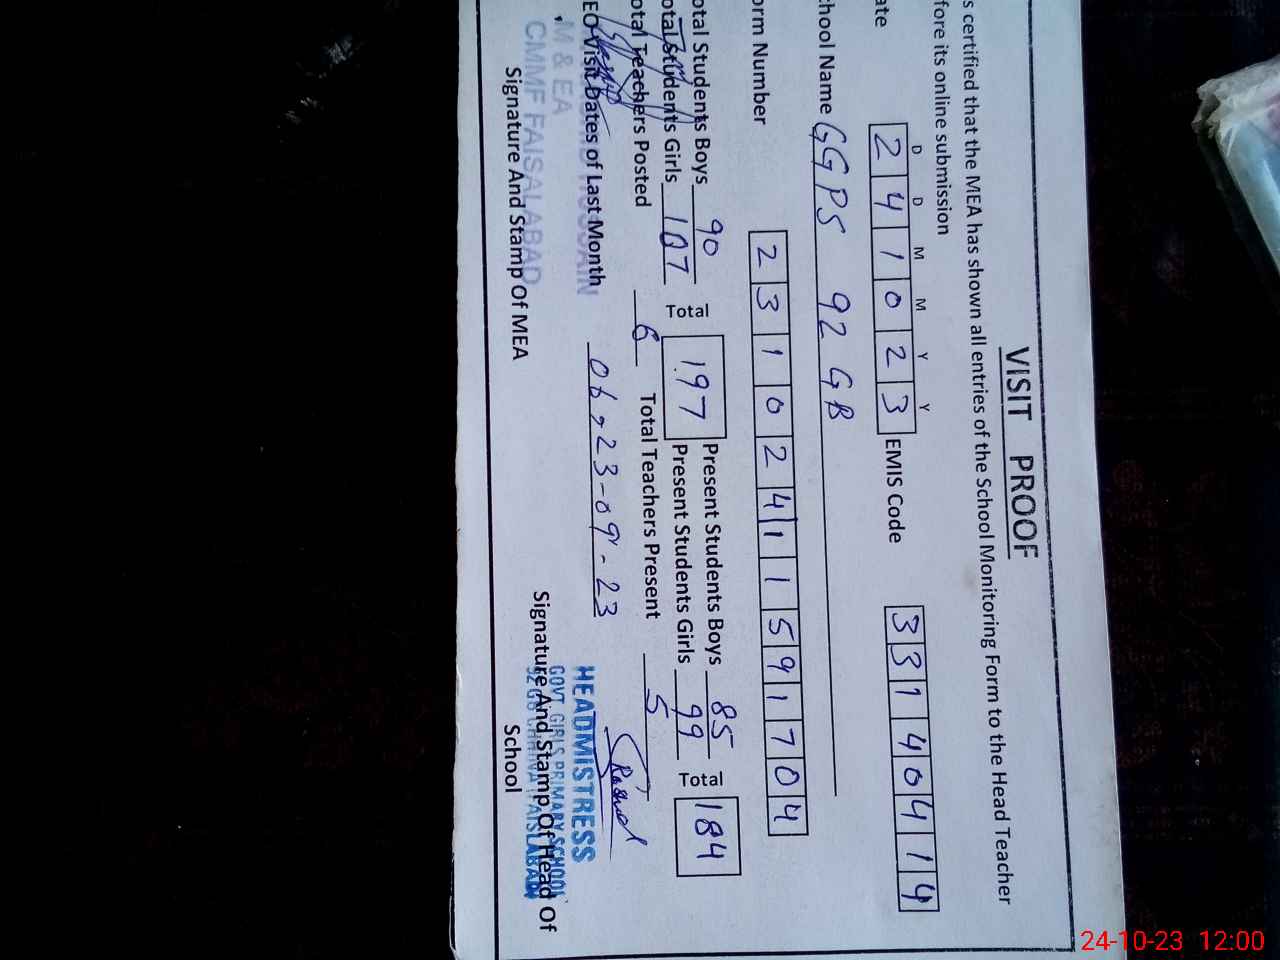 VISIT PROOF
s certified that the MEA has shown all entries of the School Monitoring Form to the Head Teacher
fore its online submission
D D M M Y Y
ate 2 4 1 0 2 3 EMIS Code 3 3 1 4 0 4 1 4
chool Name GGPS 92 GB
orm Number 2 3 1 0 2 4 1 1 5 9 1 7 0 4
otal Students Boys 90 Total 197 Present Students Boys 85 Total 184
otal Students Girls 107 Present Students Girls 99
otal Teachers Posted 6 Total Teachers Present 5
EO Visit Dates of Last Month 06, 23-09-23
M & EA
CMMF FAISALABAD
Signature And Stamp Of MEA
HEADMISTRESS
GOVT. GIRLS PRIMARY SCHOOL
92 GB FAISLABAD
Signature And Stamp Of Head Of
School
24-10-23 12:00